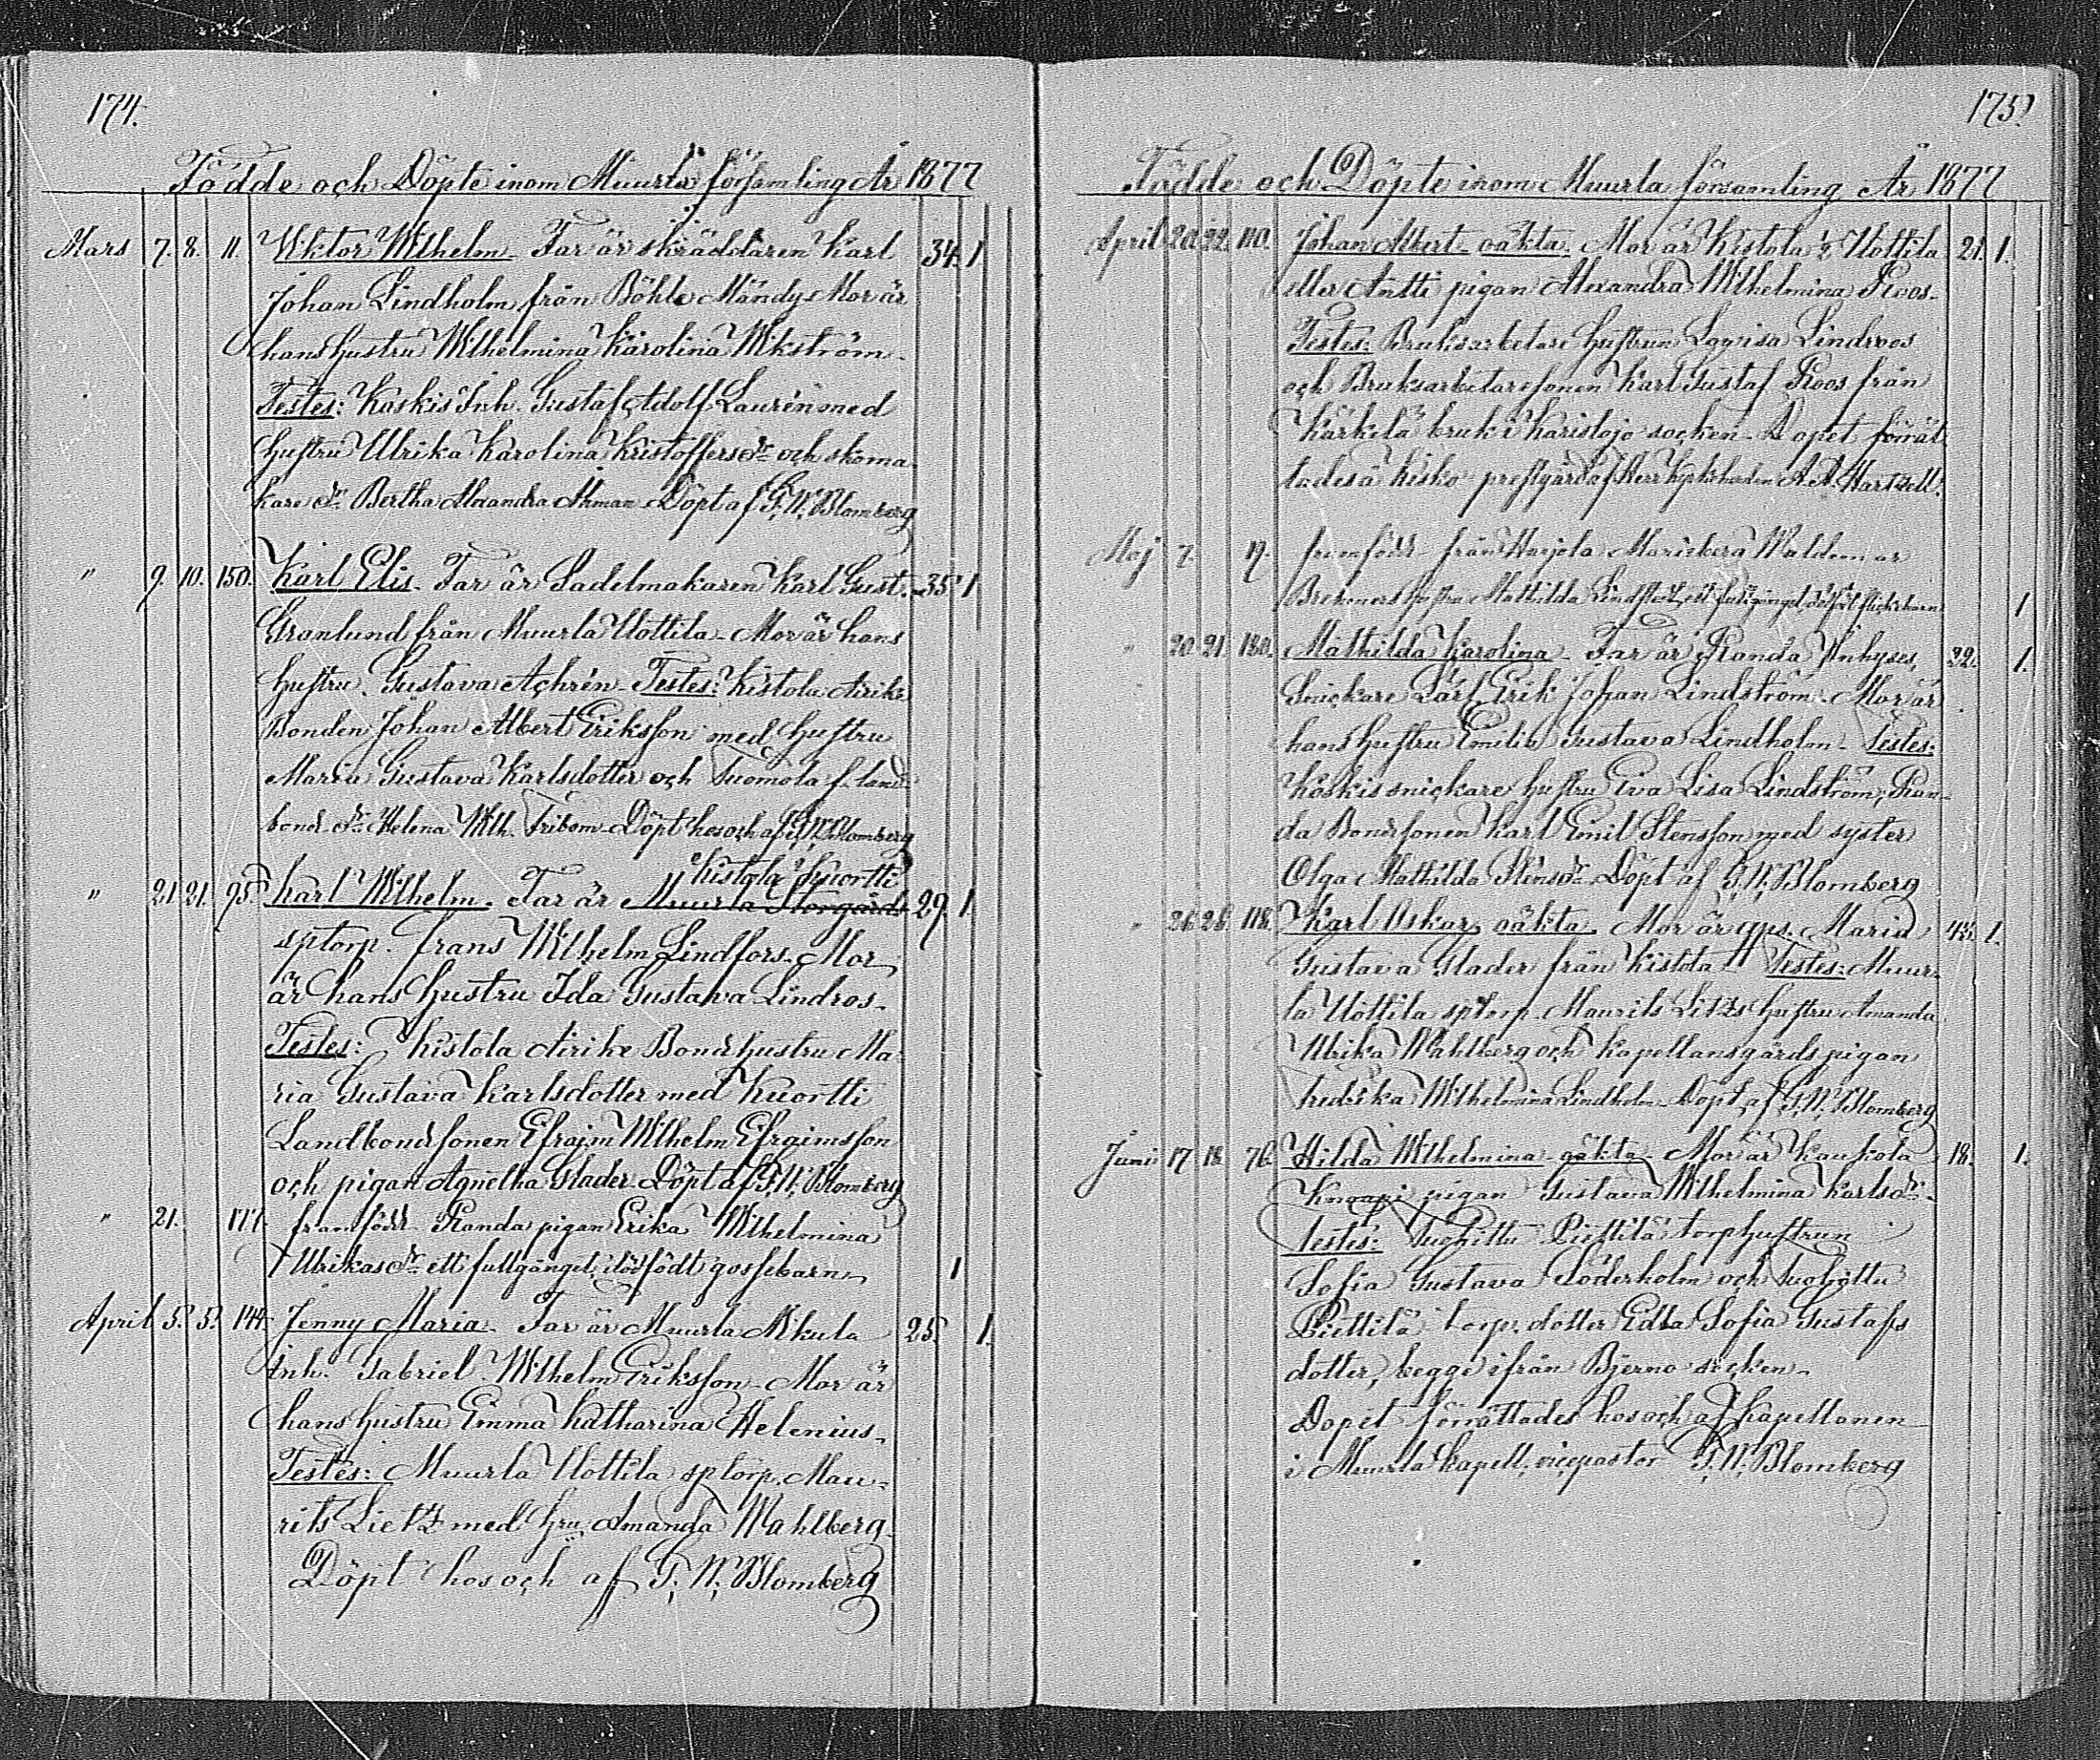 174.
Födde och Döpte inom Muurla församling År 1877
Mars 7. 8. 11. Wiktor Wilhelm Far är skräddaren Karl 34. 1
Johan Lindholm från Böhle Mändy Mor är
hans hustru Wilhelmina Karolina Wikström
Testes: Koskis Inh. Gustaf Adolf Laurén med
hustru Ulrika Karolina Kristoffersdr och skoma
kare dr Bertha Alexandra Åhman Döpt af G. W. Blomberg
" 9. 10. 150. Karl Elis. Far är Sadelmakaren Karl Gust. 35 1
Granlund från Muurla Uottila Mor är hans
hustru Gustava Achrén Testes: Kistola Airike
Bonden Johan Albert Eriksson med hustru
Maria Gustava Karlsdotter och Suomola f. land
bond. dr Helena Wilh. Fribom Döpt hos och af G. W. Blomberg
Kistola Kuortti
" 21 21. 95. Karl Wilhelm. Far är Muurla Storgårds 29. 1.
sptorp. Frans Wilhelm Lindfors Mor
är hans hustru Ida Gustava Lindros
Testes: Kistola Airike Bondhustru Ma
ria Gustava Karlsdotter med Kuortti
Landbondsonen Efraim Wilhelm Efraimsson
och pigan Agnetha Glader Döpt af G. W. Blomberg
" 21. 177. framfödd Randa pigan Erika Wilhelmina
Ulrikasdr ett fullgånget, dödfödt gossebarn 1
April 5. 5. 144. Jenny Maria Far är Muurla Mikula 25. 1.
inh. Gabriel Wilhelm Eriksson Mor är
hans hustru Emma Katharina Helenius
Testes: Muurla Uottila sptorp. Mau-
rits Lietz med hru Amanda Wahlberg
Döpt hos och af G. W. Blomberg
175.
Födde och Döpte inom Muurla församling År 1877
April 20. 22. 110. Johan Albert oäkta. Mor är Kistola Uottila 21. 1.
eller Antti pigan Alexandra Wilhelmina Roos
Testes: Bruksarbetare hustrun Lovisa Lindroos
och Bruksarbetaresonen Karl Gustaf Roos från
Kärkelä bruk i Karislojo socken. Dopet förrät
tades å Kisko prestgård af Herr Kyrkoherden A. A. Hartzell.
Maj 7. 19. framfödd från Harjola Marieberg Waldemar
hustru Mathilda ett fullgånget, dödfödt flickebarn 1
" 20. 21. 180. Mathilda Karolina Far är Randa Inhyses 32. 1.
Snickare Lärl. Erik Johan Lindström Mor är
hans hustru Emilia Gustava Lindholm Testes:
Koskis snickare hustru Eva Lisa Lindström, Ran-
da Bondesonen Karl Emil Stensson med syster
Olga Mathilda Stensdr Döpt af G. W. Blomberg
" 26. 28. 118. Karl Oskar, oäkta. Mor är Maria 43. 1.
Gustava Glader från Kistola Testes: Muur-
la Uottila sptorp. Maurits Litzs hustru Amanda
Ulrika Wahlberg och Kapellansgårds pigan
Fredrika Wilhelmina Lindholm Döpt af G. W. Blomberg
Juni 17 18. 76. Hilda Wilhelmina oäkta Mor är Kaukola 18. 1.
Knaapi pigan Gustava Wilhelmina Karlsdr
Testes: Suohittu Piettilä torphustrun
Sofia Gustava Söderholm och Suohittu
Piettilä torp. dotter Edla Sofia Gustafs
dotter, begge ifrån Bjerno socken
Dopet förrättades hos och af Kapellanen
i Muurla kapell, vicepastor G. W. Blomberg